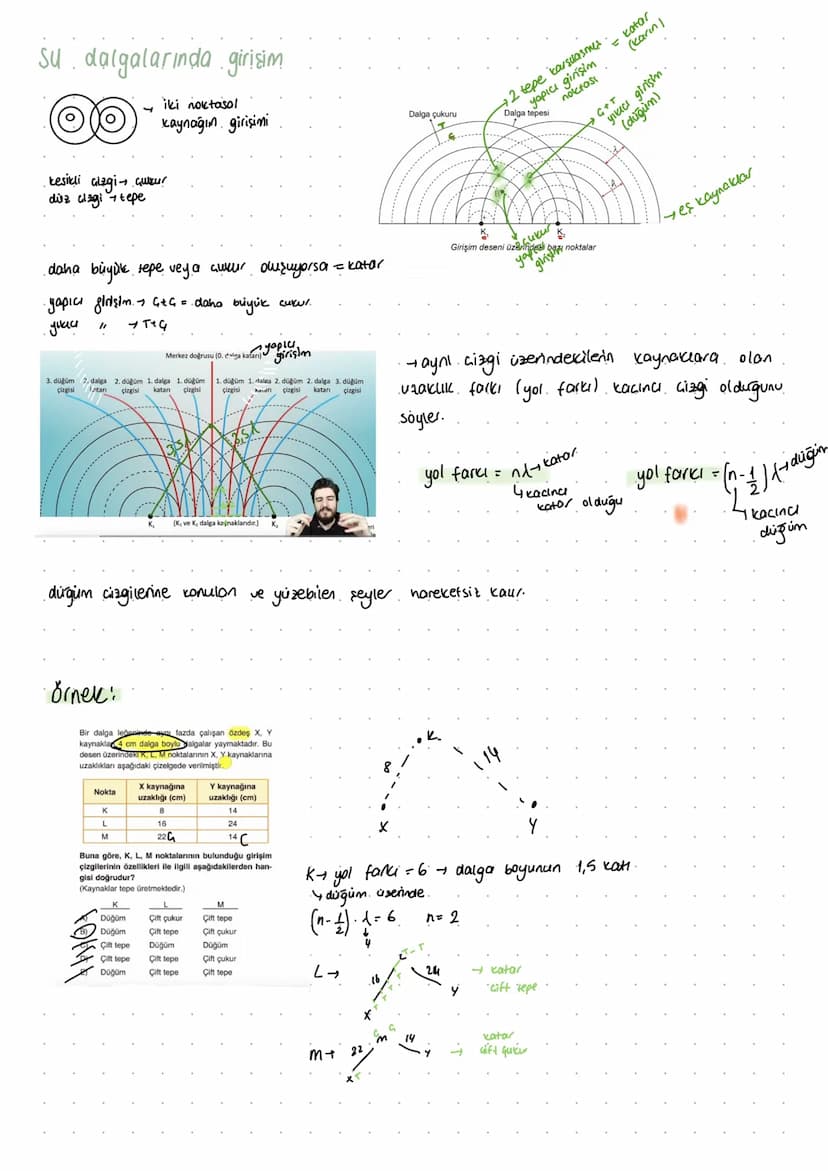 su dalgalarında girişim
→ iki noktasal
kaynağın girişimi
kesikli çizgi → çukur
düz çizgi → tepe
2 tepe karşılaşması = katar
yapıcı girişim (karın)
noktası
Ç+T
yıkıcı girişim
(düğüm)
Dalga çukuru
Dalga tepesi
T
Ç
λ
λ
→ eş kaynaklar
K₁
K₂
2 çukur
yapıcı
girişim
Girişim deseni üzerindeki bazı noktalar
daha büyük tepe veya çukur oluşuyorsa = katar
yapıcı girişim → Ç+Ç = daha büyük çukur
yıkıcı " → T+Ç
Merkez doğrusu (0. dalga katarı)
yapıcı
girişim
3. düğüm çizgisi
2. dalga katarı
2. düğüm çizgisi
1. dalga katarı
1. düğüm çizgisi
1. düğüm çizgisi
1. dalga katarı
2. düğüm çizgisi
2. dalga katarı
3. düğüm çizgisi
3,5λ
3,5λ
K₁
(K₁ ve K₂ dalga kaynaklarıdır.)
K₂
→ aynı çizgi üzerindekilerin kaynaklara olan
uzaklık farkı (yol farkı) kaçıncı çizgi olduğunu
söyler.
yol farkı = nλ → katar
↳ kaçıncı
katar olduğu
yol farkı = (n - 1/2) λ → düğüm
↳ kaçıncı
düğüm
düğüm çizgilerine konulan ve yüzebilen şeyler hareketsiz kalır.
örnek:
Bir dalga leğeninde aynı fazda çalışan özdeş X, Y
kaynakları 4 cm dalga boylu dalgalar yaymaktadır. Bu
desen üzerindeki K, L, M noktalarının X, Y kaynaklarına
uzaklıkları aşağıdaki çizelgede verilmiştir.
Nokta
X kaynağına uzaklığı (cm)
Y kaynağına uzaklığı (cm)
K 8 14
L 16 24
M 22 Ç 14 Ç
Buna göre, K, L, M noktalarının bulunduğu girişim
çizgilerinin özellikleri ile ilgili aşağıdakilerden han-
gisi doğrudur?
(Kaynaklar tepe üretmektedir.)
K L M
A) Düğüm Çift çukur Çift tepe
B) Düğüm Çift tepe Çift çukur
C) Çift tepe Düğüm Düğüm
D) Çift tepe Çift tepe Çift çukur
E) Düğüm Çift tepe Çift tepe
K
8
14
X
Y
K → yol farkı = 6 → dalga boyunun 1,5 katı
↳ düğüm üzerinde
(n - 1/2) . λ = 6 n = 2
4
L →
16
L
T - T
24
X
Y
→ katar
çift tepe
M →
22
Ç Ç
M
14
X T
Y
→ katar
çift çukur